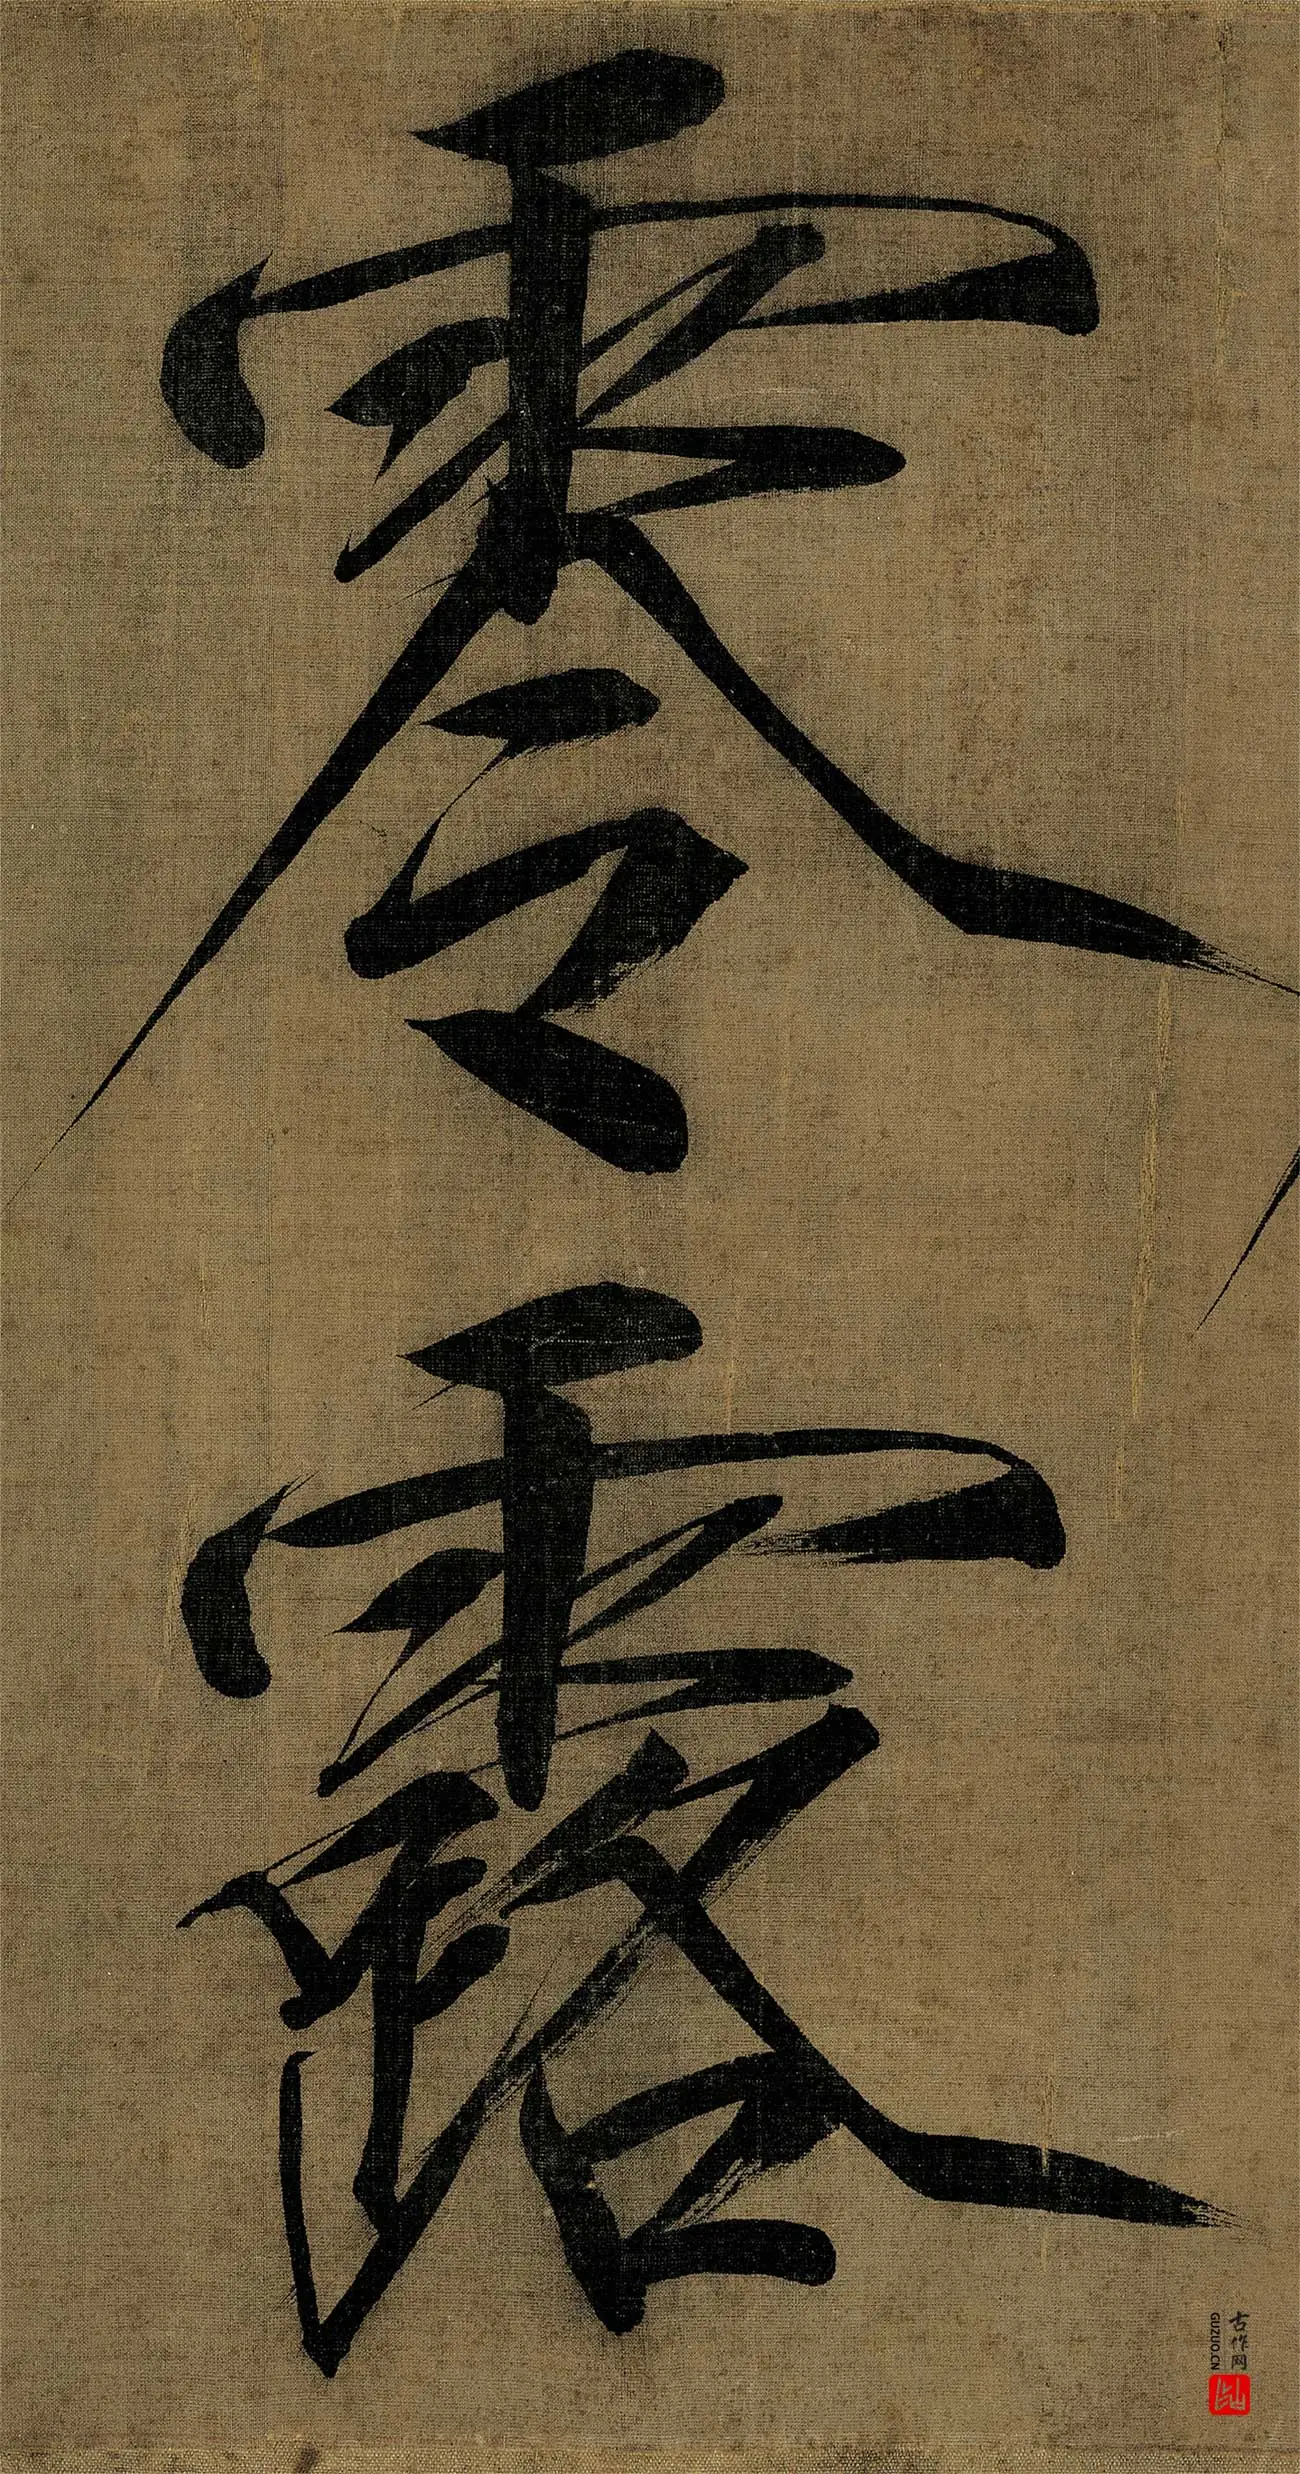 零露
古作网
GUZUO.CN